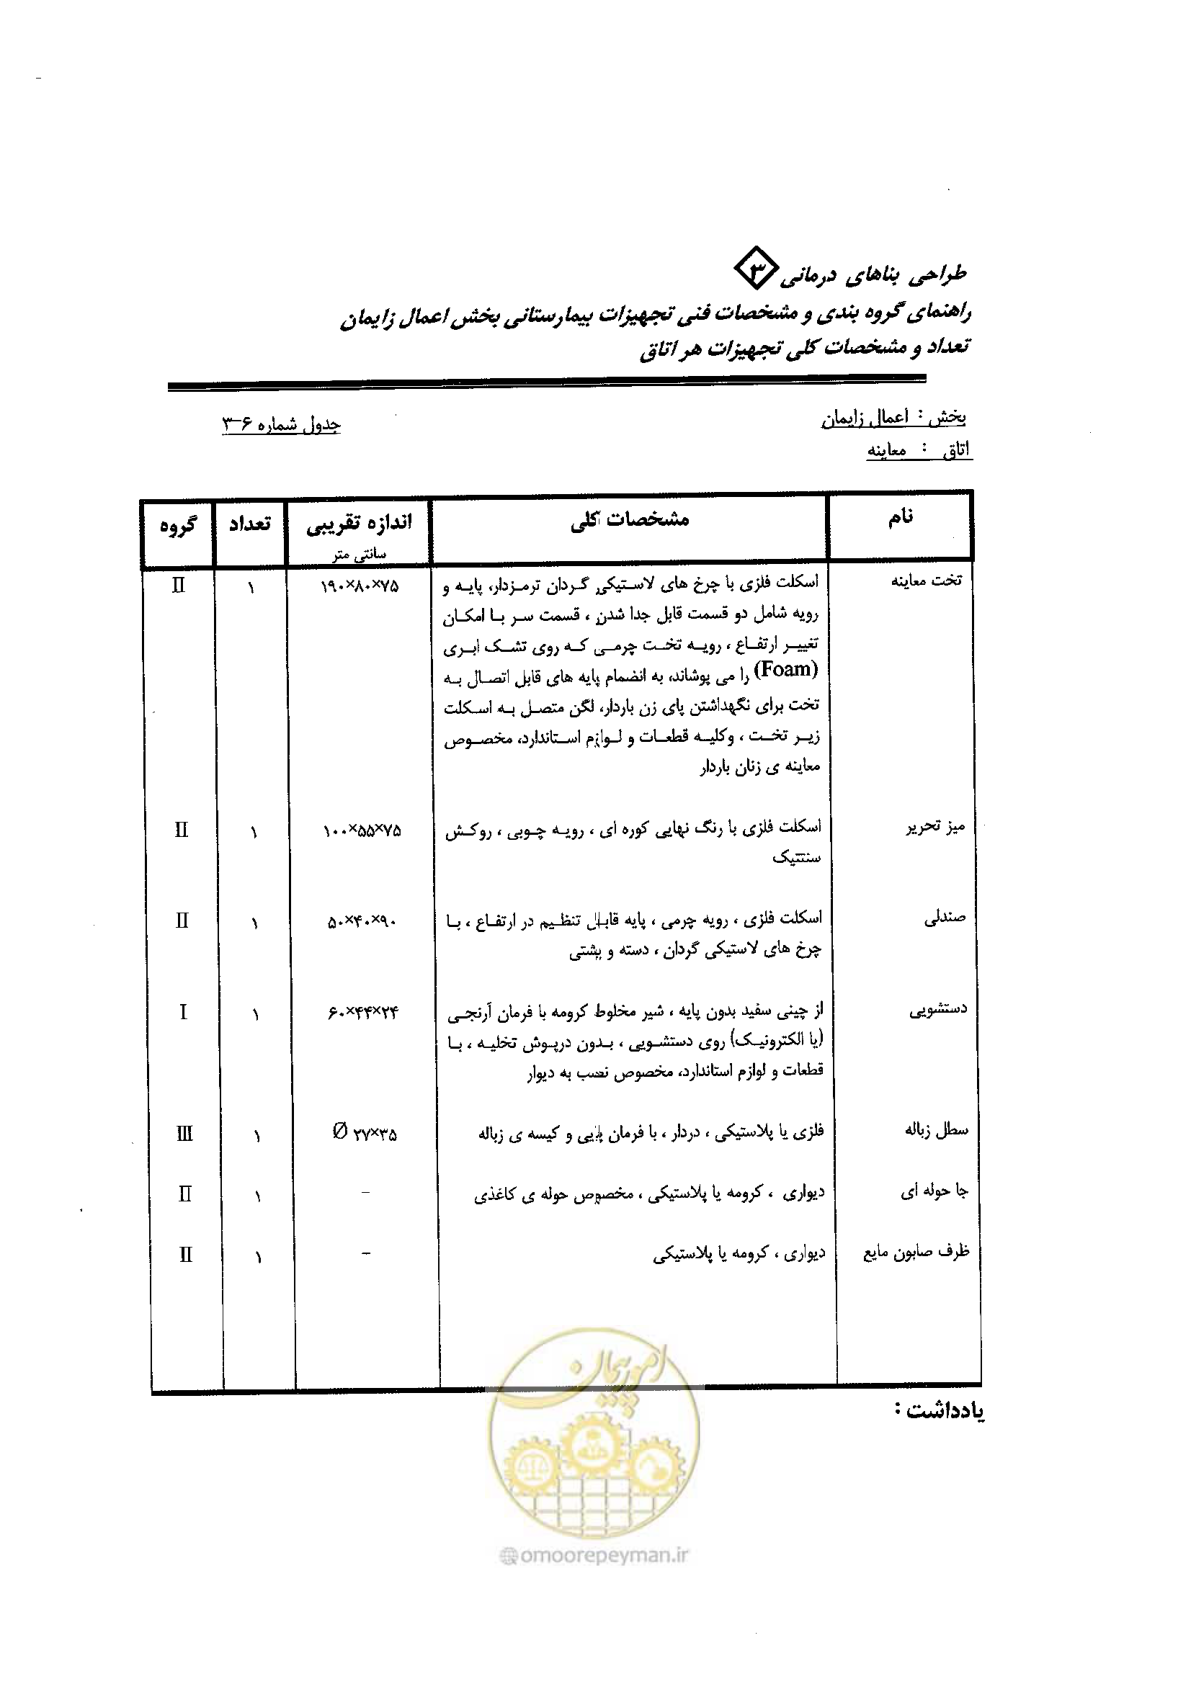 طراحی بناهای درمانی ۳
راهنمای گروه بندی و مشخصات فنی تجهیزات بیمارستانی بخش اعمال زایمان
تعداد و مشخصات کلی تجهیزات هر اتاق
بخش : اعمال زایمان
جدول شماره ۶-۳
اتاق : معاینه
نام مشخصات کلی اندازه تقریبی تعداد گروه
سانتی متر
تخت معاینه اسکلت فلزی با چرخ های لاستیکی گردان ترمزدار، پایه و ۱۹۰×۸۰×۷۵ ۱ II
رویه شامل دو قسمت قابل جدا شدن ، قسمت سر با امکان
تغییر ارتفاع ، رویه تخت چرمی که روی تشک ابری
(Foam) را می پوشاند، به انضمام پایه های قابل اتصال به
تخت برای نگهداشتن پای زن باردار، لگن متصل به اسکلت
زیر تخت ، وکلیه قطعات و لوازم استاندارد، مخصوص
معاینه ی زنان باردار
میز تحریر اسکلت فلزی با رنگ نهایی کوره ای ، رویه چوبی ، روکش ۱۰۰×۵۵×۷۵ ۱ II
سنتتیک
صندلی اسکلت فلزی ، رویه چرمی ، پایه قابل تنظیم در ارتفاع ، با ۵۰×۴۰×۹۰ ۱ II
چرخ های لاستیکی گردان ، دسته و پشتی
دستشویی از چینی سفید بدون پایه ، شیر مخلوط کرومه با فرمان آرنجی ۶۰×۴۴×۲۴ ۱ I
(یا الکترونیک) روی دستشویی ، بدون درپوش تخلیه ، با
قطعات و لوازم استاندارد، مخصوص نصب به دیوار
سطل زباله فلزی یا پلاستیکی ، دردار ، با فرمان پایی و کیسه ی زباله Ø ۲۷×۳۵ ۱ III
جا حوله ای دیواری ، کرومه یا پلاستیکی ، مخصوص حوله ی کاغذی - ۱ II
ظرف صابون مایع دیواری ، کرومه یا پلاستیکی - ۱ II
یادداشت :
امور پیمان
@omoorepeyman.ir